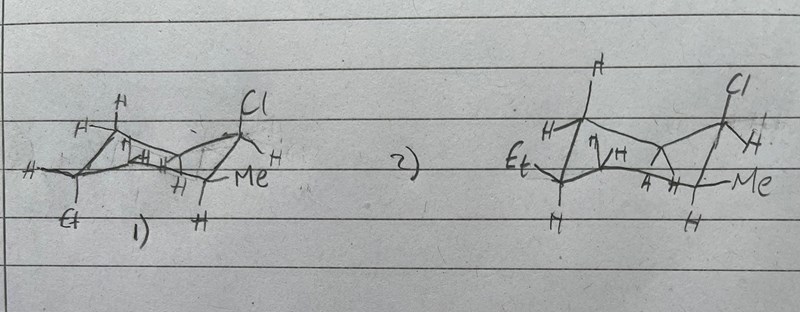 H H Cl
H H H Cl
H H H H H H Et H H H
H Me A H Me
Et H H H
1) 2)